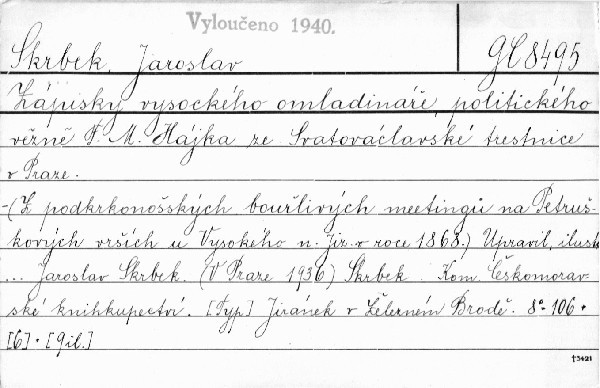 Vyloučeno 1940.
Skrbek, Jaroslav
GC 8495
Zápisky vysockého omladináře, politického
vězně F. M. Hájka ze Svatováclavské trestnice
v Praze.
-(Z podkrkonošských bouřlivých meetingů na Petruš-
kových vrších u Vysokého n. Jiz. v roce 1868.) Upravil, ilust.
... Jaroslav Skrbek. (V Praze 1936) Skrbek. Kom. Českomorav-
ské knihkupectví. [Typ] Jiránek v Železném Brodě. 8°- 106 +
[6] . [9 il.]
†3421